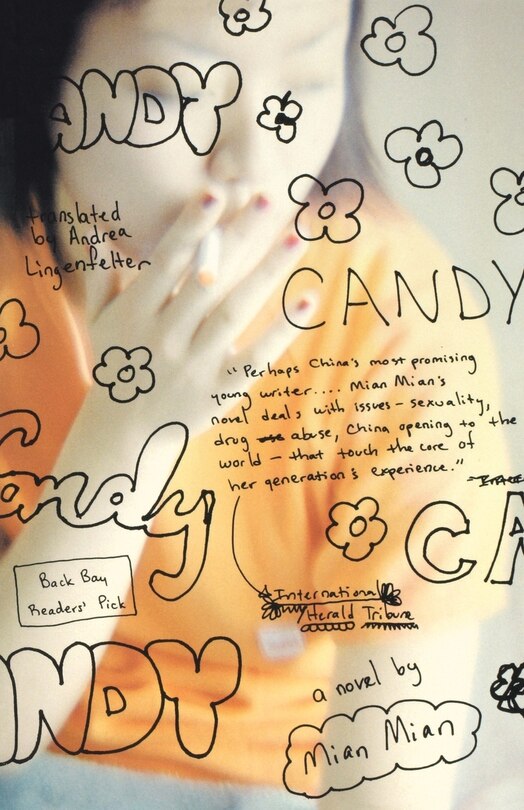 ANDY
translated
by Andrea
Lingenfelter
CANDY
"Perhaps China's most promising
young writer.... Mian Mian's
novel deals with isses - sexuality,
drug abuse, China opening to the
world - that touch the core of
her generation's experience."
International
Herald Tribune
andy
CA
Back Bay
Readers' Pick
ANDY
a novel by
Mian Mian